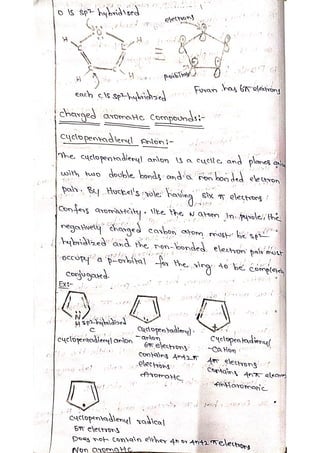 O is sp² hybridised
electrons
O
H
H
H
H
=
positions
each c is sp² hybridised
Furan has 6π electrons
charged aromatic compounds:-
cyclopentadienyl Anion:-
The cyclopentadienyl anion is a cyclic and planar
with two double bonds and a non bonded electron
pair. By Huckel's rule having six π electrons
Confers aromaticity. like the N atom in pyrole, the
negatively charged carbon atom must be sp²
hybridized and the non-bonded electron pair must
occupy a p-orbital for the ring to be completely
conjugated.
Exs:-
H sp³ hybridised
C
cyclopentadienyl anion
cyclopentadienyl
anion
6π electrons
contains 4n+2 π
electrons
Aromatic
+
cyclopentadienyl
-cation
4π electrons
contains 4nπ electrons
Antiaromanic
cyclopentadienyl radical
5π electrons
Does not contain either 4n or 4n+2 π electrons
Non aromatic